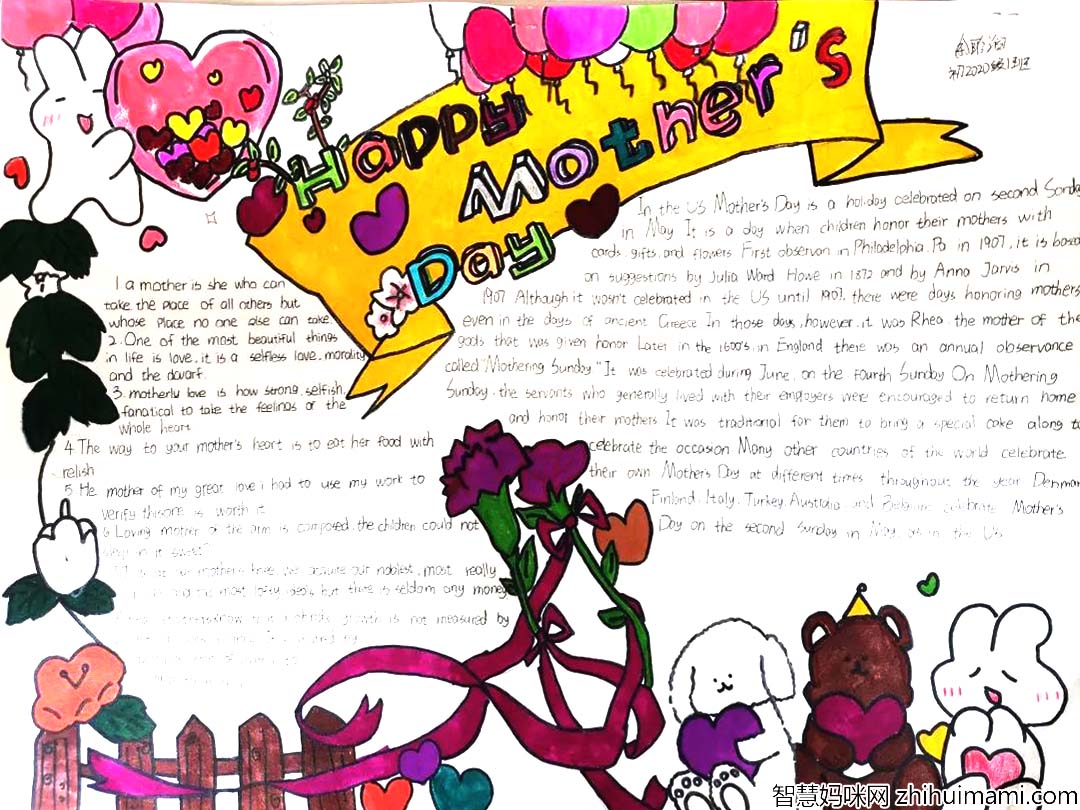 Happy
Mother's
Day
In the US Mother's Day is a holiday celebrated on second Sunda
in May It is a day when children honor their mothers with
cards, gifts, and flowers First observan in Philadelphia, Pa in 1907, it is based
on suggestions by Julia Ward Howe in 1872 and by Anna Jarvis in
1907 Although it wasn't celebrated in the US until 1907, there were days honoring mothers
even in the days of ancient Greece In those days, however, it was Rhea, the mother of the
gods that was given honor Later in the 1600's, in England there was an annual observance
called "Mothering Sunday" It was celebrated during June, on the fourth Sunday On Mothering
Sunday, the servants who generally lived with their employers were encouraged to return home
and honor their mothers It was traditional for them to bring a special cake along to
celebrate the occasion Many other countries of the world celebrate
their own Mother's Day at different times throughout the year Denmar
Finland, Italy, Turkey, Australia, and Belgium celebrate Mother's
Day on the second Sunday in May, as in the US
1 a mother is she who can
take the place of all others but
whose place no one else can take.
2. One of the most beautiful things
in life is love, it is a selfless love, morality
and the dwarf.
3. motherly love is how strong, selfish,
fanatical to take the feelings of the
whole heart
4 The way to your mother's heart is to eat her food with
relish
5 He mother of my great love i had to use my work to
verify thisone is worth it
6 Loving mother of the arm is composed, the children could not
sleep in it sweet?
our noblest, most really
and the most lofty ideas, but there is seldom any money
growth is not measured by
智慧妈咪网 zhihuimami.com